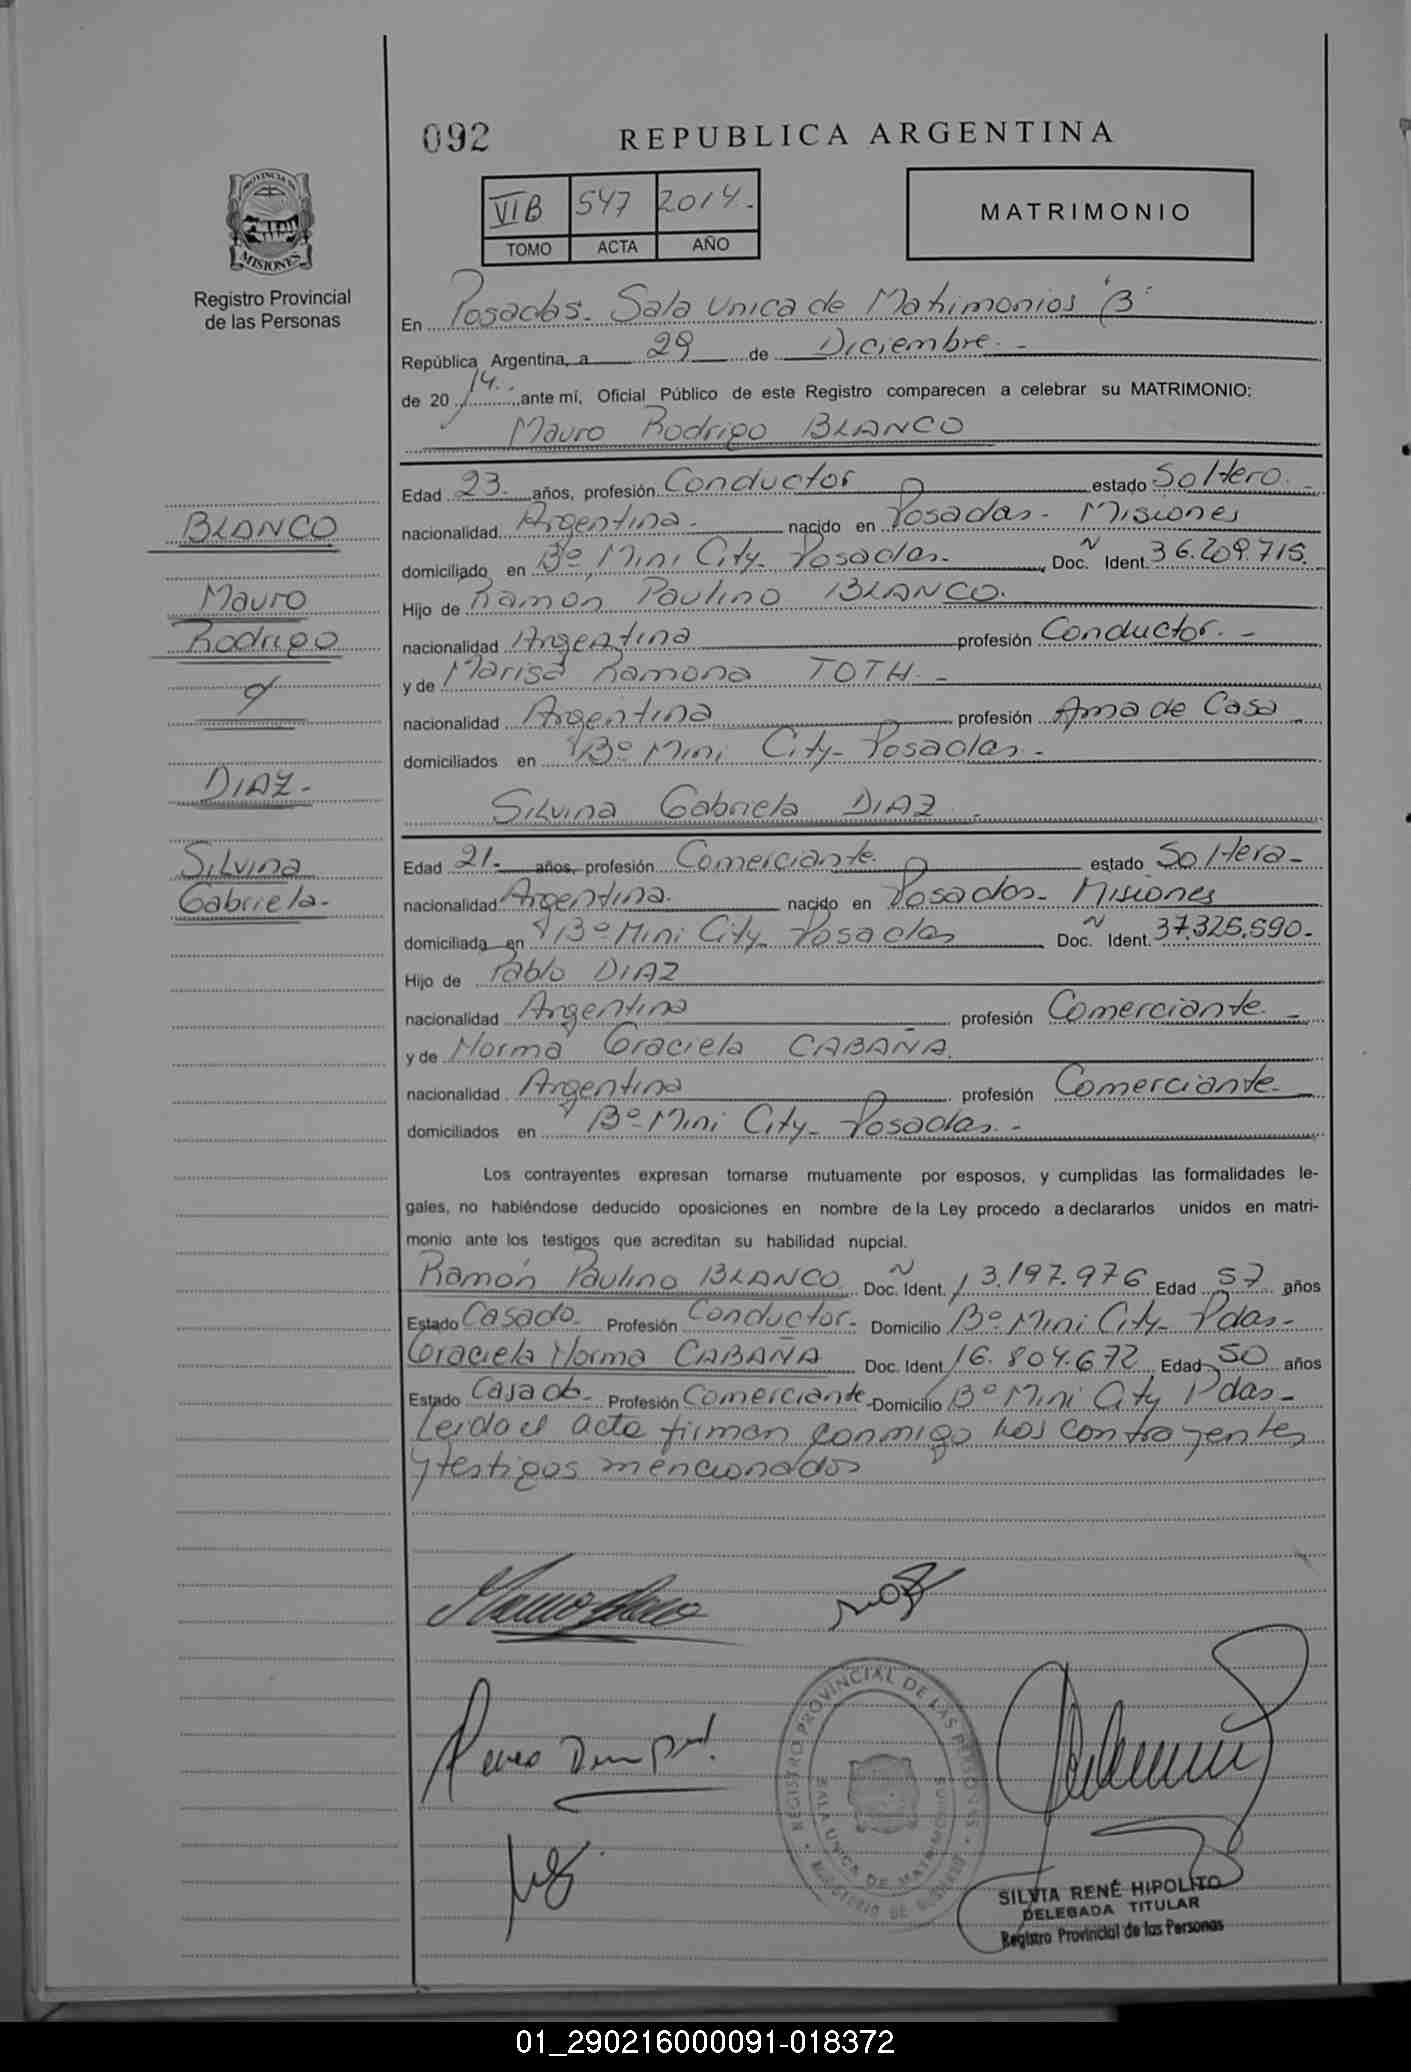 092
REPUBLICA ARGENTINA
VIB 547 2014.
TOMO ACTA AÑO
MATRIMONIO
PROVINCIA DE
MISIONES
Registro Provincial
de las Personas
En Posadas. Sala Unica de Matrimonios "B"
República Argentina, a 29 de Diciembre.-
de 20 14. ante mí, Oficial Público de este Registro comparecen a celebrar su MATRIMONIO:
Mauro Rodrigo BLANCO
Edad 23. años, profesión Conductor estado Soltero.-
nacionalidad Argentina. nacido en Posadas- Misiones
domiciliado en Bº Mini City- Posadas. Doc. N Ident. 36.209.715.
Hijo de Ramón Paulino BLANCO.
nacionalidad Argentina profesión Conductor.-
y de Marisa Ramona TOTH.-
nacionalidad Argentina profesión Ama de Casa
domiciliados en Bº Mini City- Posadas.-
BLANCO
Mauro
Rodrigo
y
DIAZ-
Silvina
Gabriela-
Silvina Gabriela DIAZ
Edad 21- años, profesión Comerciante. estado Soltera-
nacionalidad Argentina. nacido en Posadas- Misiones
domiciliada en Bº Mini City- Posadas Doc. N Ident. 37.325.590-
Hijo de Pablo DIAZ
nacionalidad Argentina profesión Comerciante.-
y de Norma Graciela CABAÑA.
nacionalidad Argentina profesión Comerciante.
domiciliados en Bº Mini City- Posadas.-
Los contrayentes expresan tomarse mutuamente por esposos, y cumplidas las formalidades le-
gales, no habiéndose deducido oposiciones en nombre de la Ley procedo a declararlos unidos en matri-
monio ante los testigos que acreditan su habilidad nupcial.
Ramón Paulino BLANCO Doc. N Ident. 13.197.976 Edad 57 años
Estado Casado- Profesión Conductor- Domicilio Bº Mini City- Pdas-
Graciela Norma CABAÑA Doc. Ident 16.804.672 Edad 50 años
Estado Casada- Profesión Comerciante- Domicilio Bº Mini City Pdas-
Leida el acta firman conmigo los contrayentes
y testigos mencionados
REGISTRO PROVINCIAL DE LAS PERSONAS
SALA UNICA DE MATRIMONIOS
SILVIA RENÉ HIPOLITO
DELEGADA TITULAR
Registro Provincial de las Personas
01_290216000091-018372